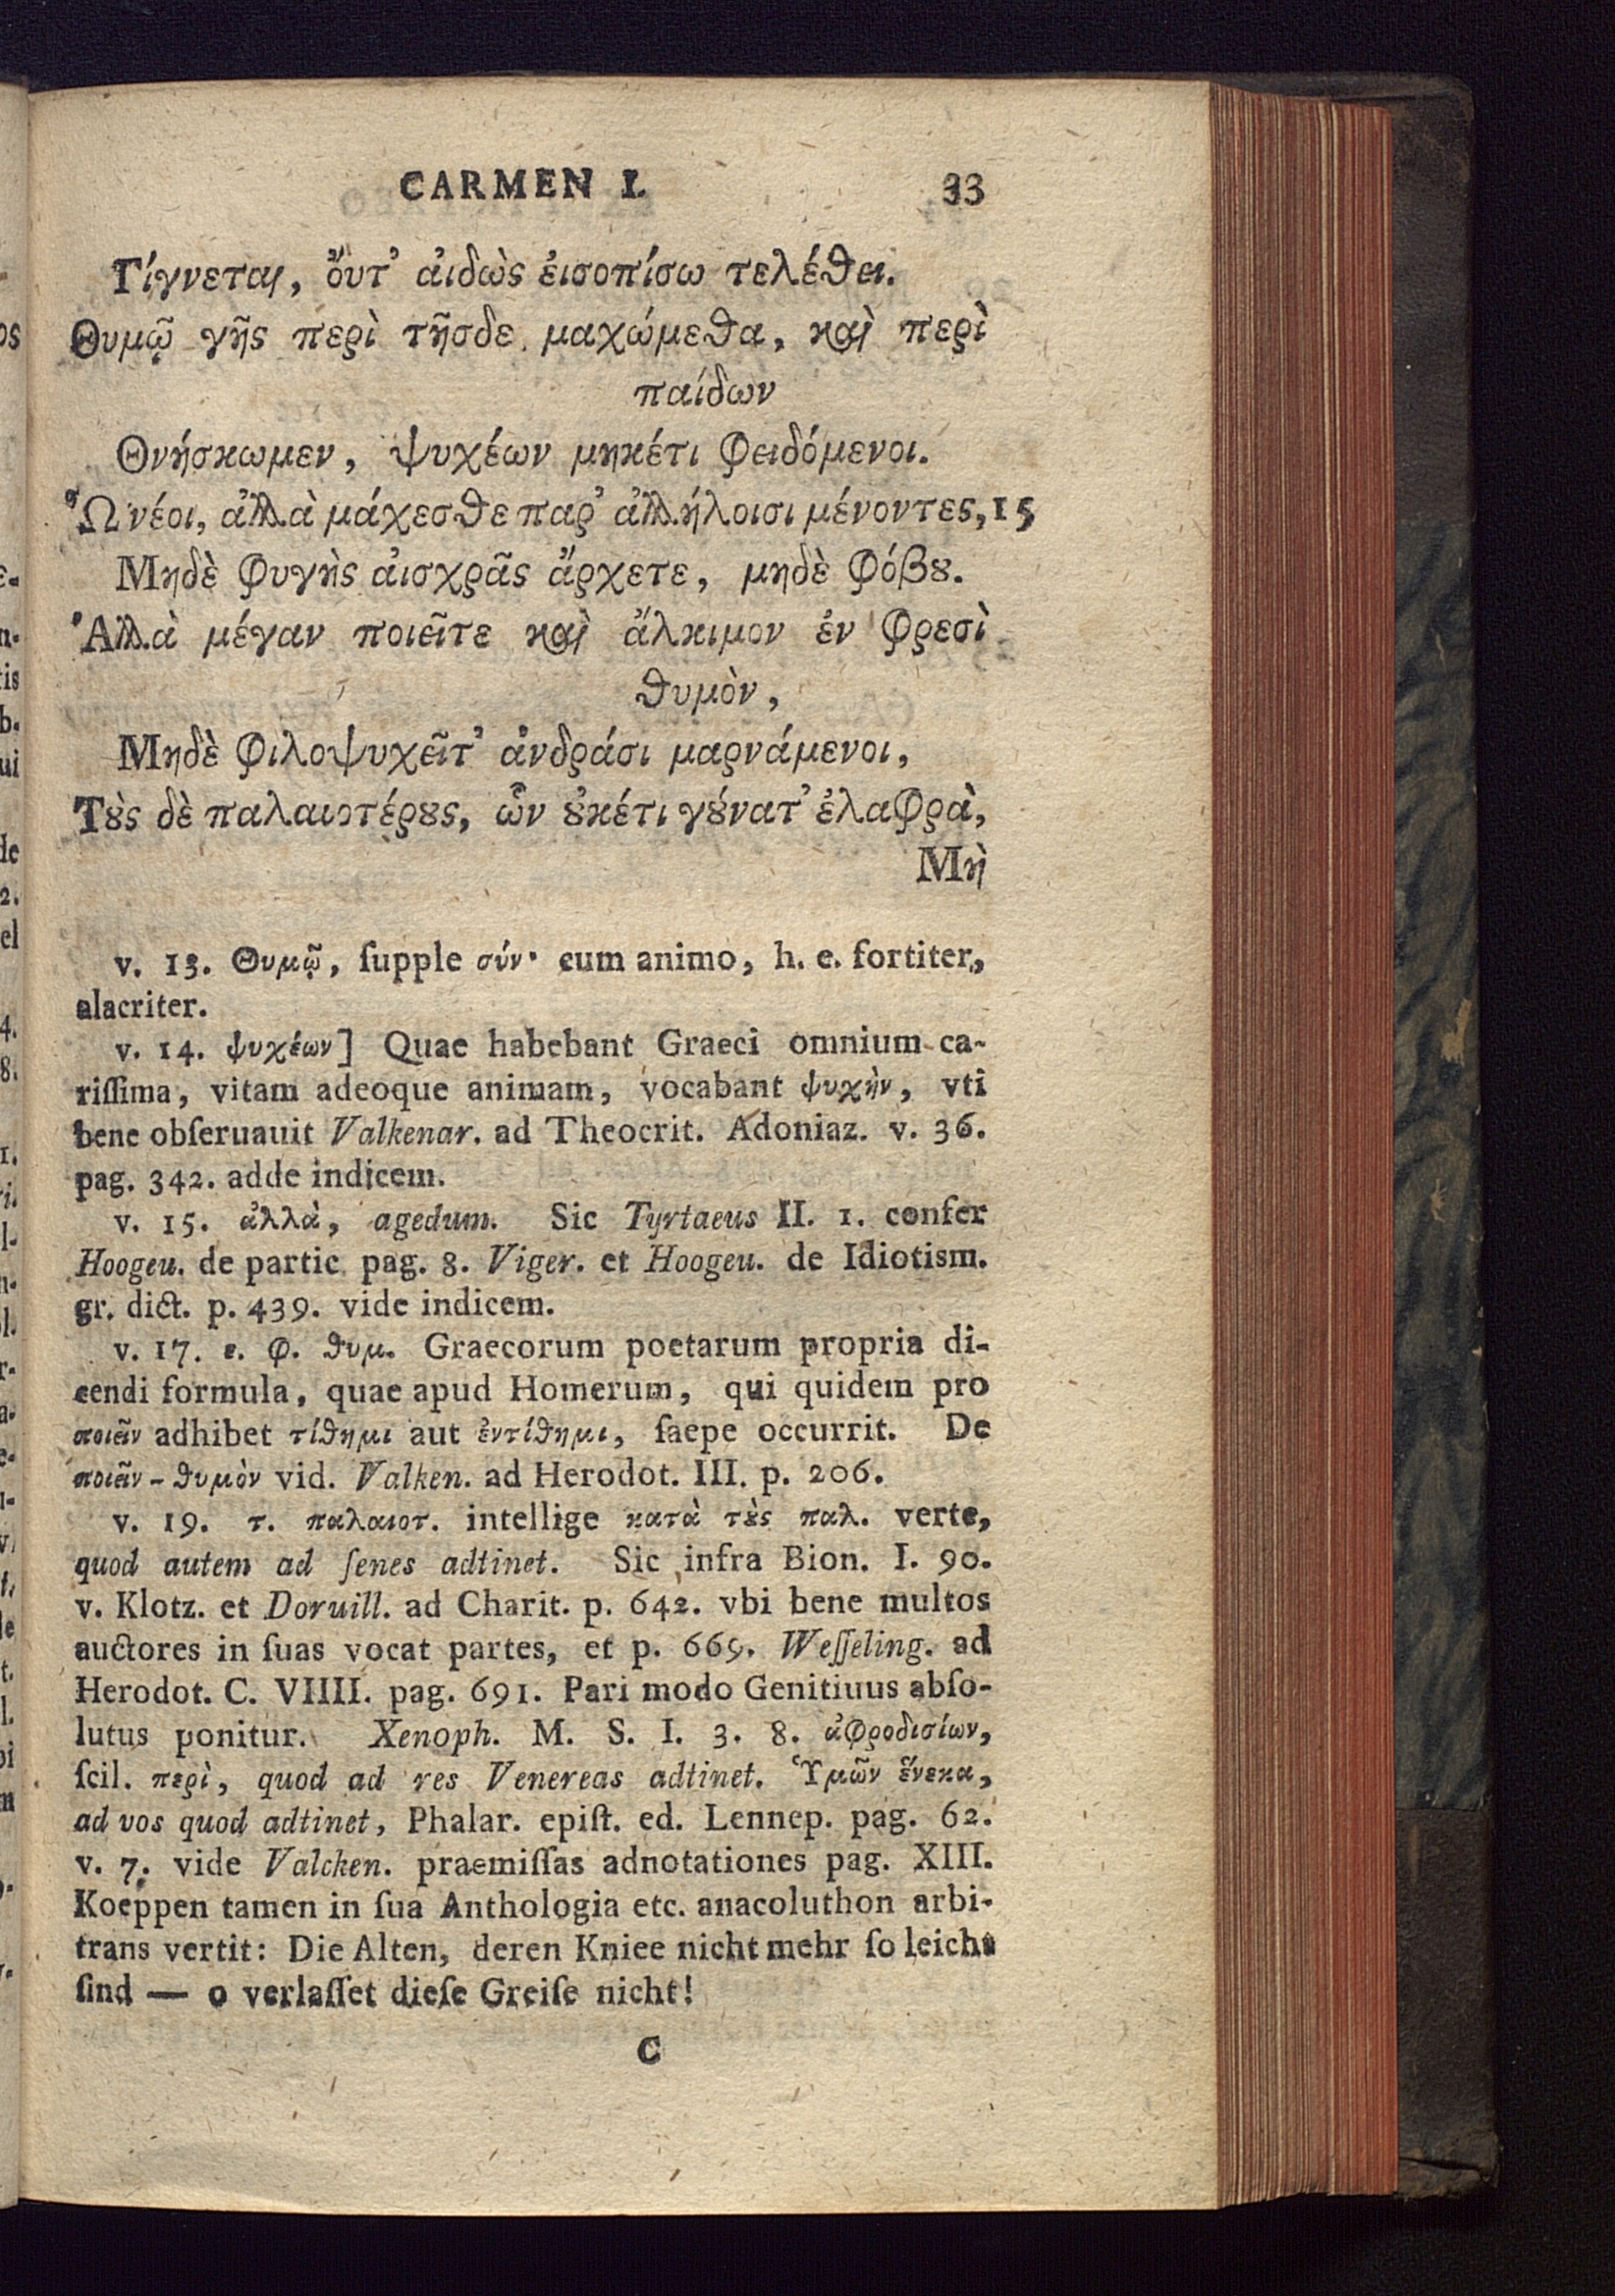 CARMEN I. 33
Γίγνεται, ὄυτ᾽ ἀιδὼς ἐισοπίσω τελέθει.
Θυμῷ γῆς περὶ τῆσδε μαχώμεθα, καὶ περὶ
παίδων
Θνήσκωμεν, ψυχέων μηκέτι φειδόμενοι.
Ὦ νέοι, ἀλλὰ μάχεσθε παρ᾽ ἀλλήλοισι μένοντες, 15
Μηδὲ φυγὴς ἀισχρᾶς ἄρχετε, μηδὲ φόβȣ.
Ἀλλὰ μέγαν ποιεῖτε καὶ ἄλκιμον ἐν φρεσὶ
θυμὸν,
Μηδὲ φιλοψυχεῖτ᾽ ἀνδράσι μαρνάμενοι,
Τȣ̀ς δὲ παλαιοτέρȣς, ὧν ȣ̓κέτι γȣ́νατ᾽ ἐλαφρὰ,
Μὴ
v. 13. Θυμῷ, ſupple σύν· cum animo, h. e. fortiter,
alacriter.
v. 14. ψυχέων] Quae habebant Graeci omnium ca-
riſſima, vitam adeoque animam, vocabant ψυχὴν, vti
bene obſeruauit Valkenar. ad Theocrit. Adoniaz. v. 36.
pag. 342. adde indicem.
v. 15. ἀλλὰ, agedum. Sic Tyrtaeus II. 1. confer
Hoogeu. de partic. pag. 8. Viger. et Hoogeu. de Idiotism.
gr. dict. p. 439. vide indicem.
v. 17. ε. φ. θυμ. Graecorum poetarum propria di-
cendi formula, quae apud Homerum, qui quidem pro
ποιεῖν adhibet τίθημι aut ἐντίθημι, ſaepe occurrit. De
ποιεῖν - θυμὸν vid. Valken. ad Herodot. III. p. 206.
v. 19. τ. παλαιοτ. intellige κατὰ τȣ̀ς παλ. verte,
quod autem ad ſenes adtinet. Sic infra Bion. I. 90.
v. Klotz. et Doruill. ad Charit. p. 642. vbi bene multos
auctores in ſuas vocat partes, et p. 669. Weſſeling. ad
Herodot. C. VIIII. pag. 691. Pari modo Genitiuus abſo-
lutus ponitur. Xenoph. M. S. I. 3. 8. ἀφροδισίων,
ſcil. περὶ, quod ad res Venereas adtinet. Ὑμῶν ἕνεκα,
ad vos quod adtinet, Phalar. epiſt. ed. Lennep. pag. 62.
v. 7. vide Valcken. praemiſſas adnotationes pag. XIII.
Koeppen tamen in ſua Anthologia etc. anacoluthon arbi-
trans vertit: Die Alten, deren Kniee nicht mehr ſo leicht
ſind — o verlaſſet dieſe Greiſe nicht!
C